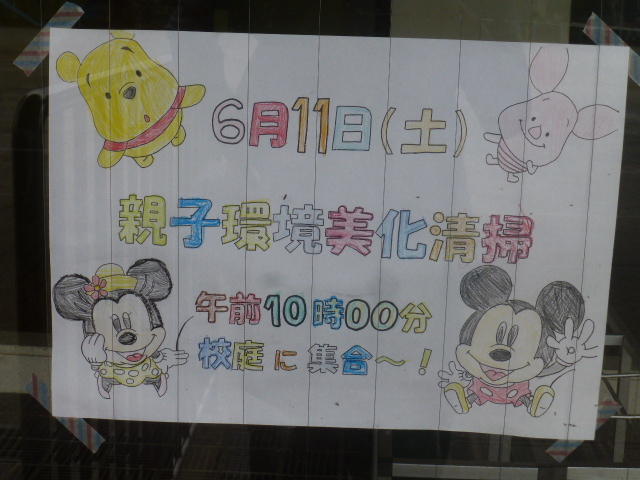 6月11日(土)
親子環境美化清掃
午前10時00分
校庭に集合～！